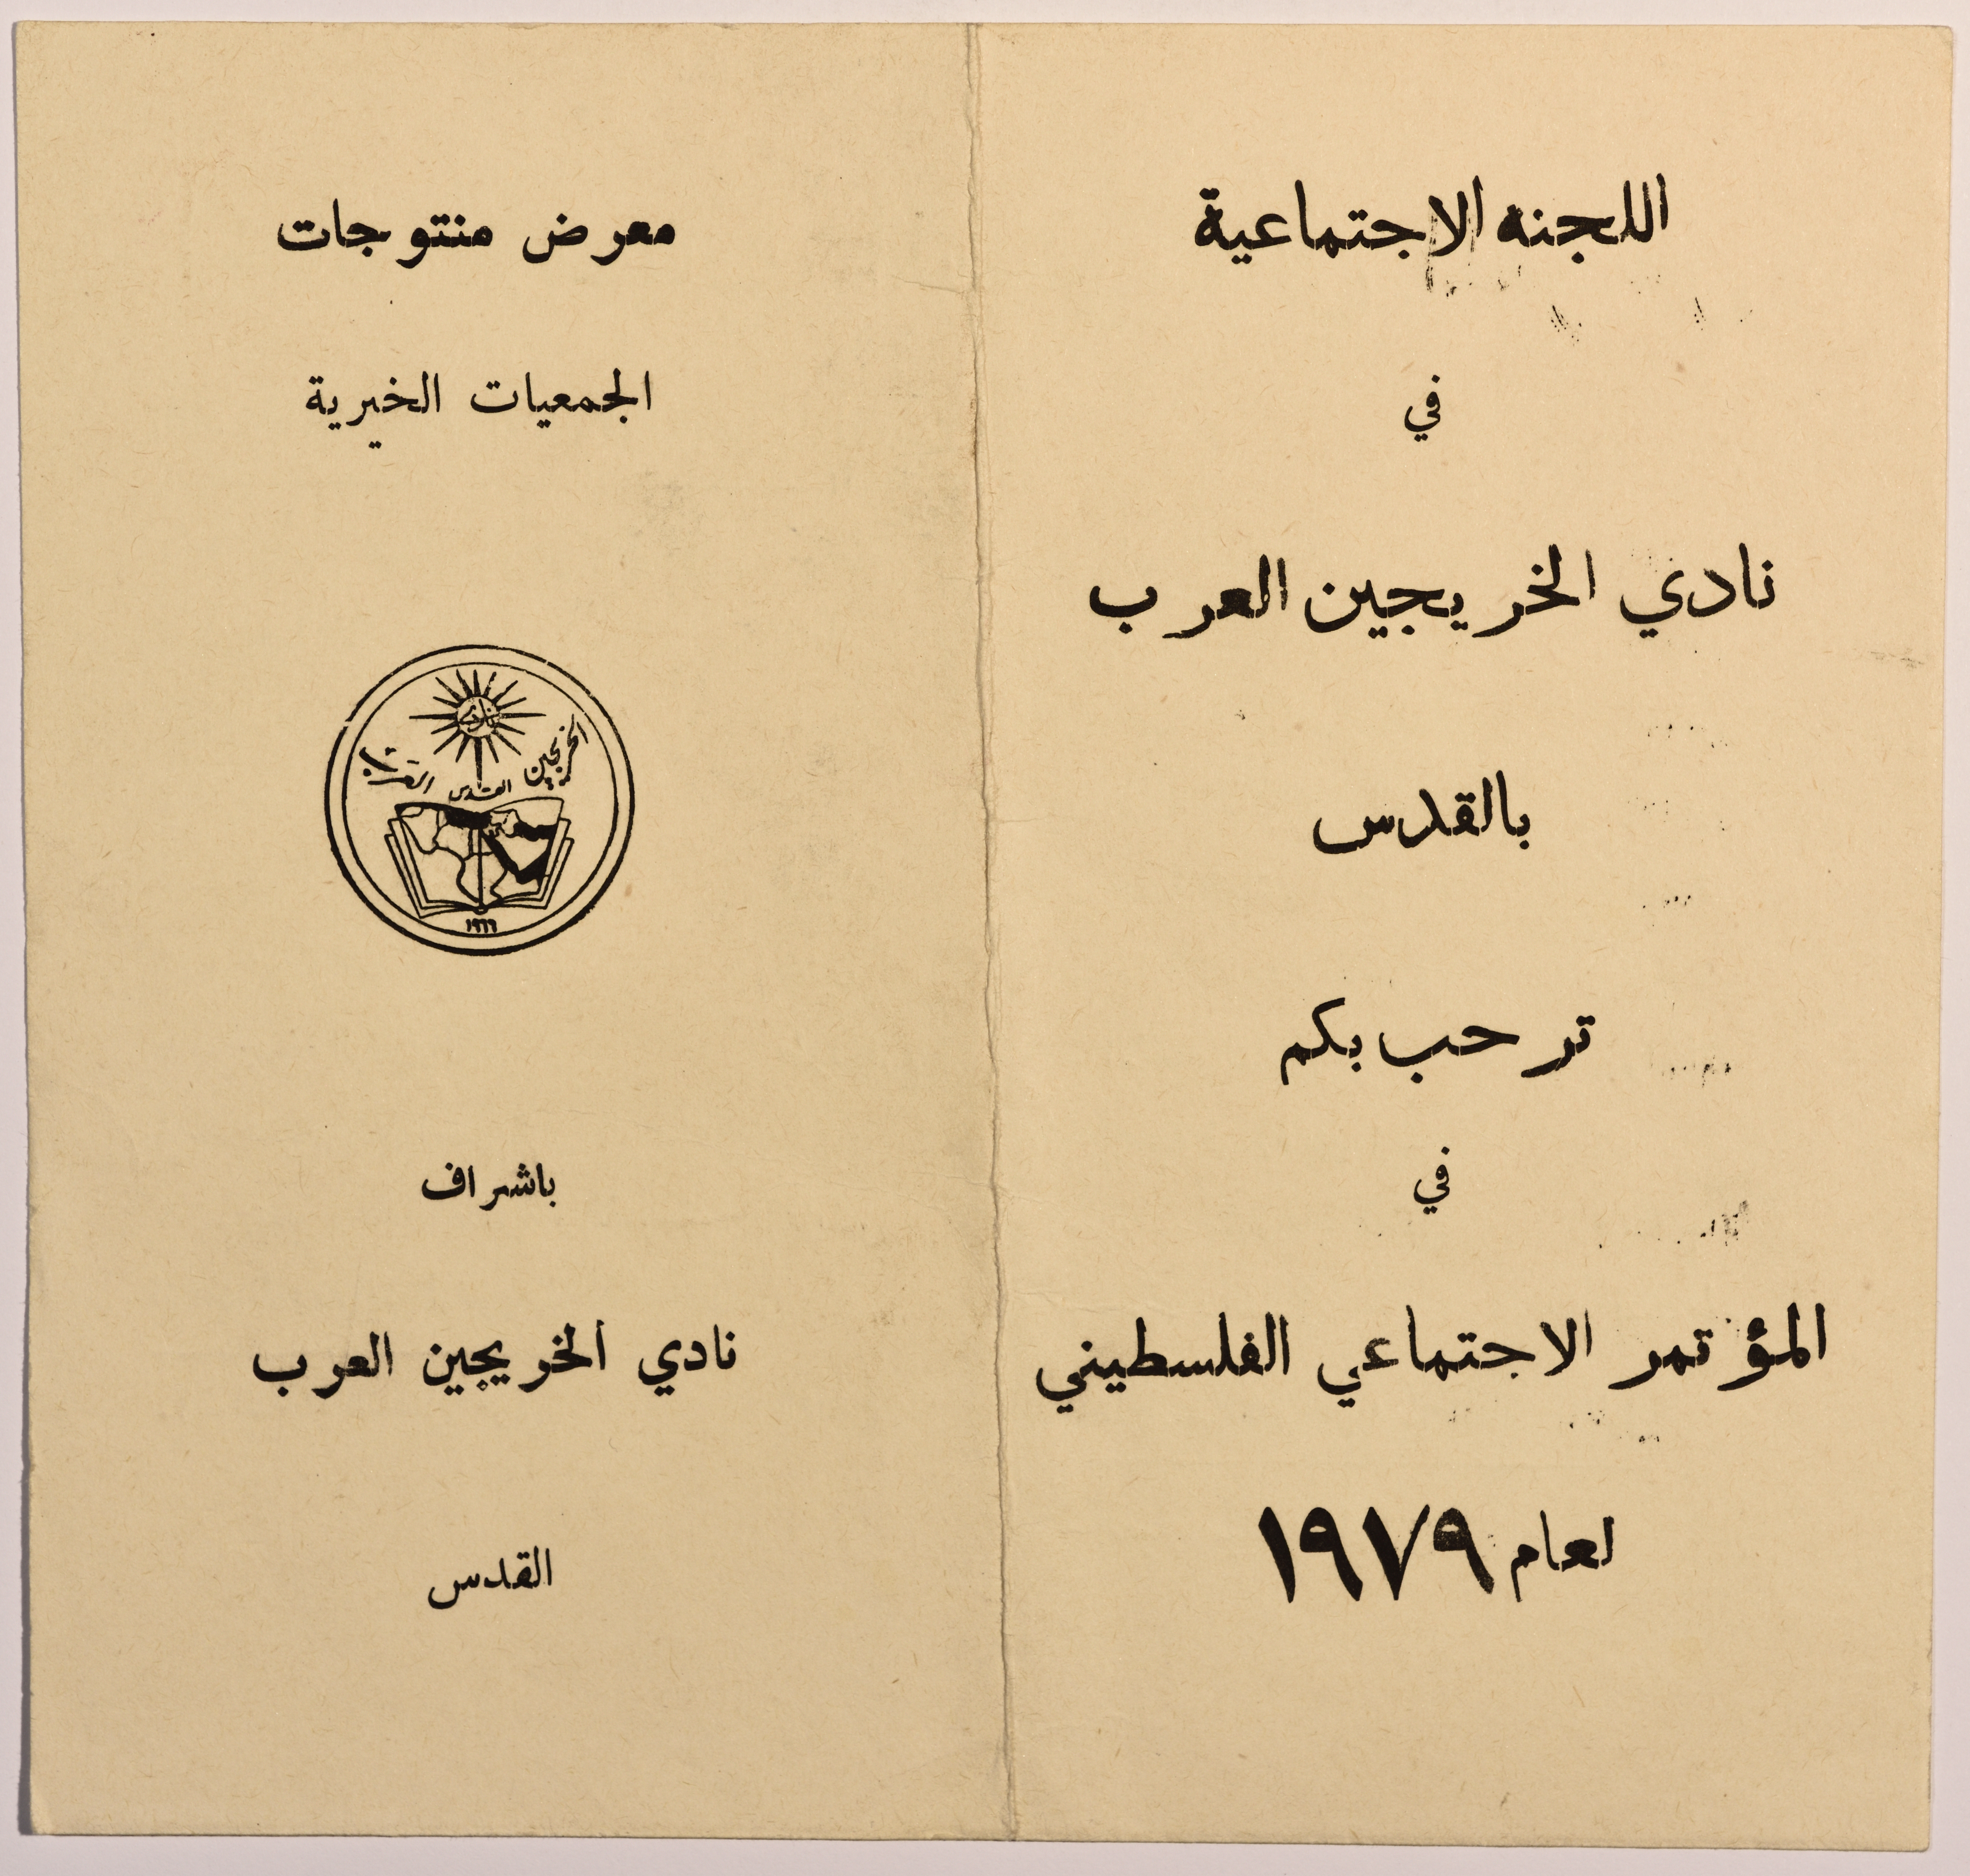 اللجنه الاجتماعية
في
نادي الخريجين العرب
بالقدس
ترحب بكم
في
المؤتمر الاجتماعي الفلسطيني
لعام ١٩٧٩
معرض منتوجات
الجمعيات الخيرية
نادي
الخريجين العرب
القدس
١٩٦٦
باشراف
نادي الخريجين العرب
القدس